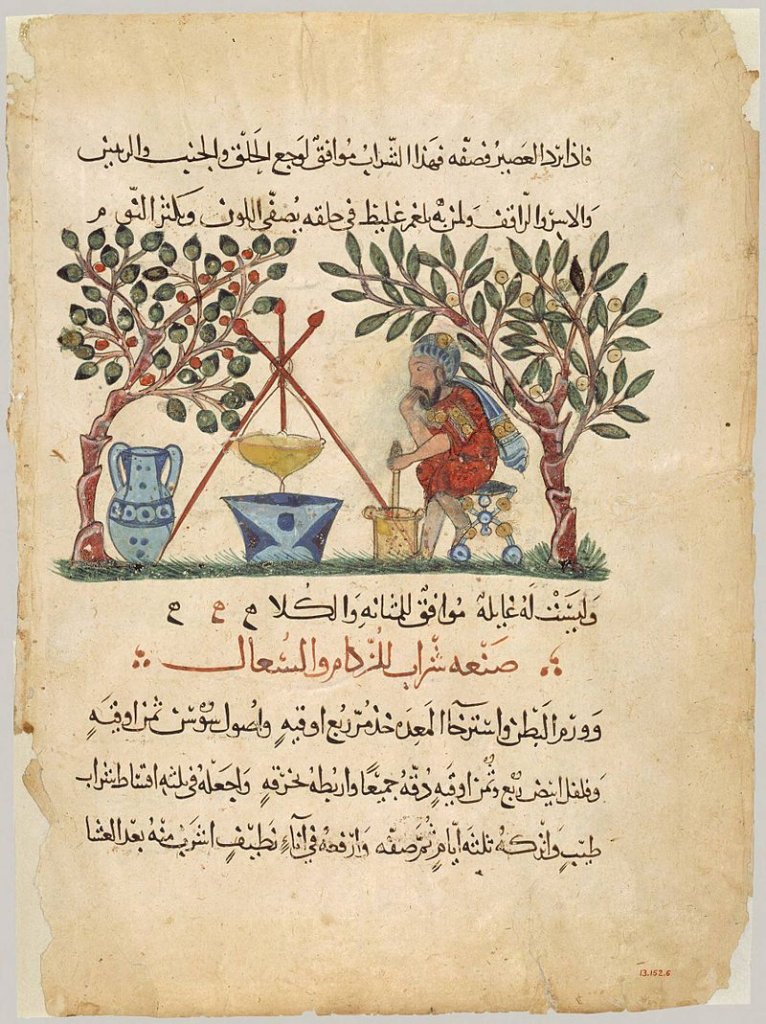 فاذا برد العصير فصفه فهذا الشراب موافق لوجع الحلق والجنب والريتين
ولمن به بلغم غليظ في حلقه يصفي اللون ويكثر النوم
وليست له غايلة موافق للمثانه والكلا ح ح ح
صنعه شراب للزكام والسعال
وورم البطن واسترخا المعده خذ مر ربع اوقيه واصول سوسن ثمن اوقيه
وفلفل ابيض ربع وثمن اوقيه دقه جميعا واربطه بخرقه واجعله في ثلثه اقساط شراب
طيب واتركه ثلثه أيام ثم صفه وارفعه في اناء نظيف اشرب منه بعد العشا
13.152.6